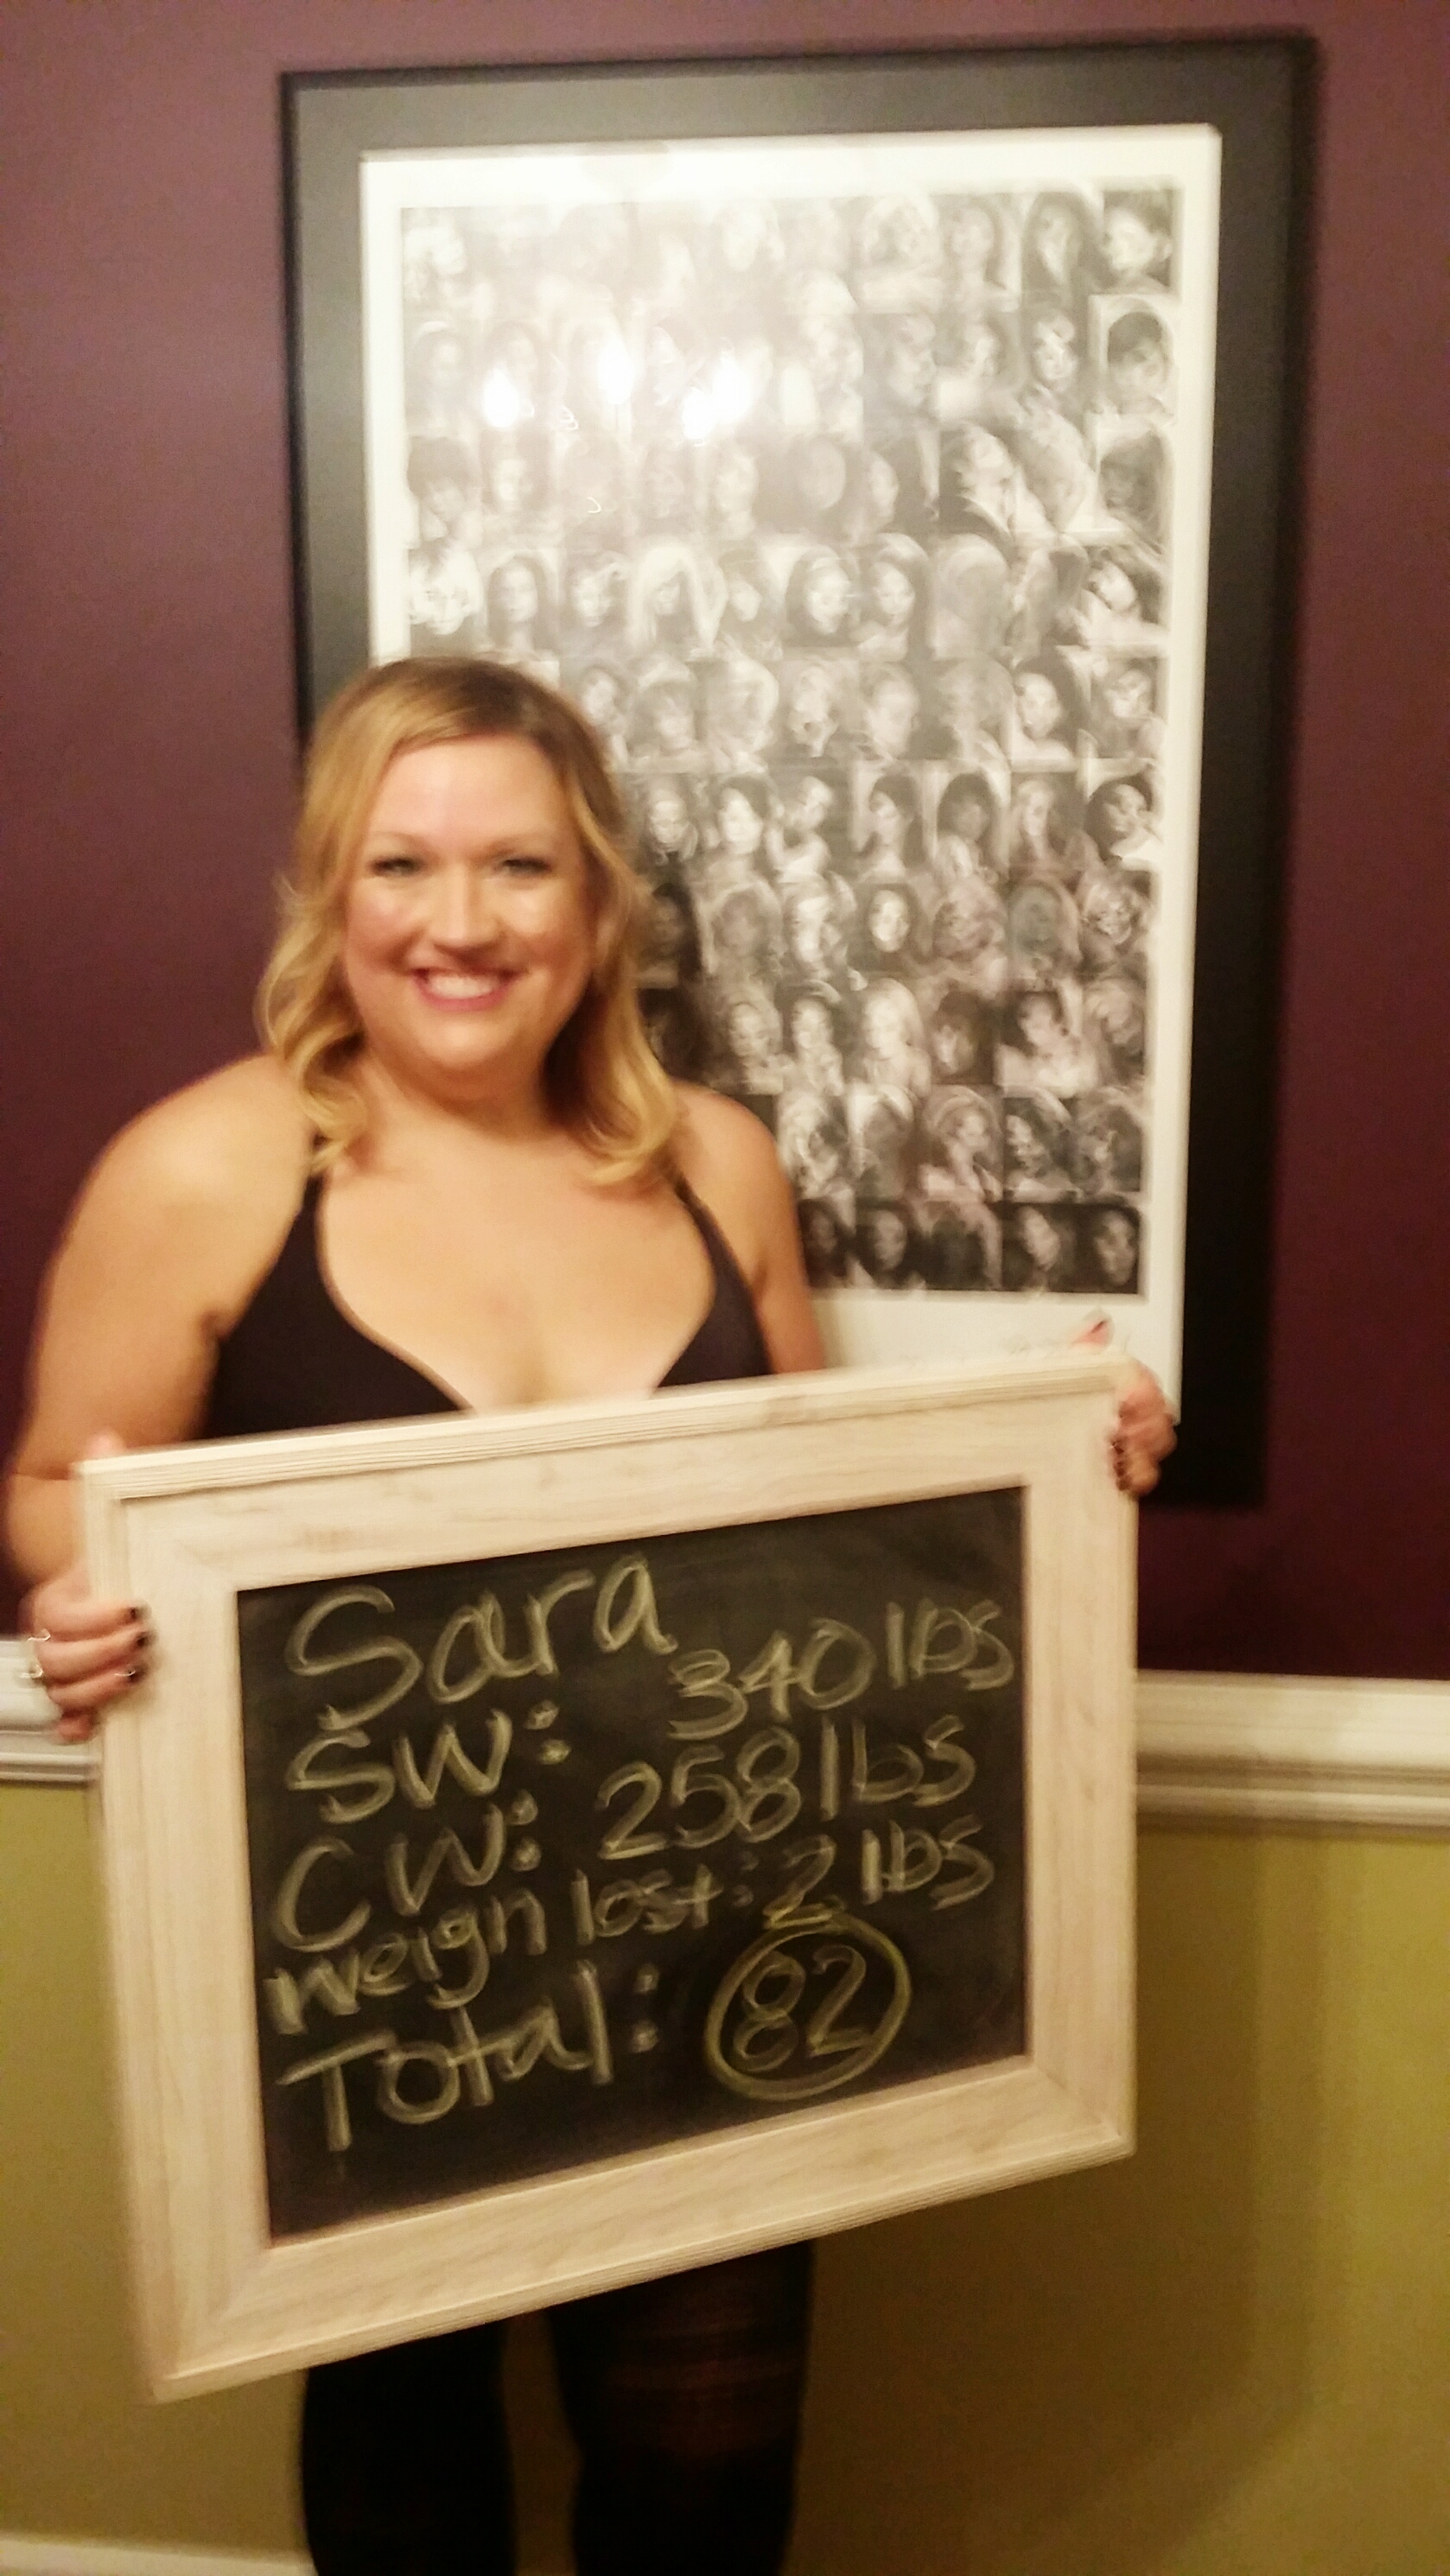 Sara
SW: 340 lbs
CW: 258 lbs
weign lost: 2 lbs
Total: 82